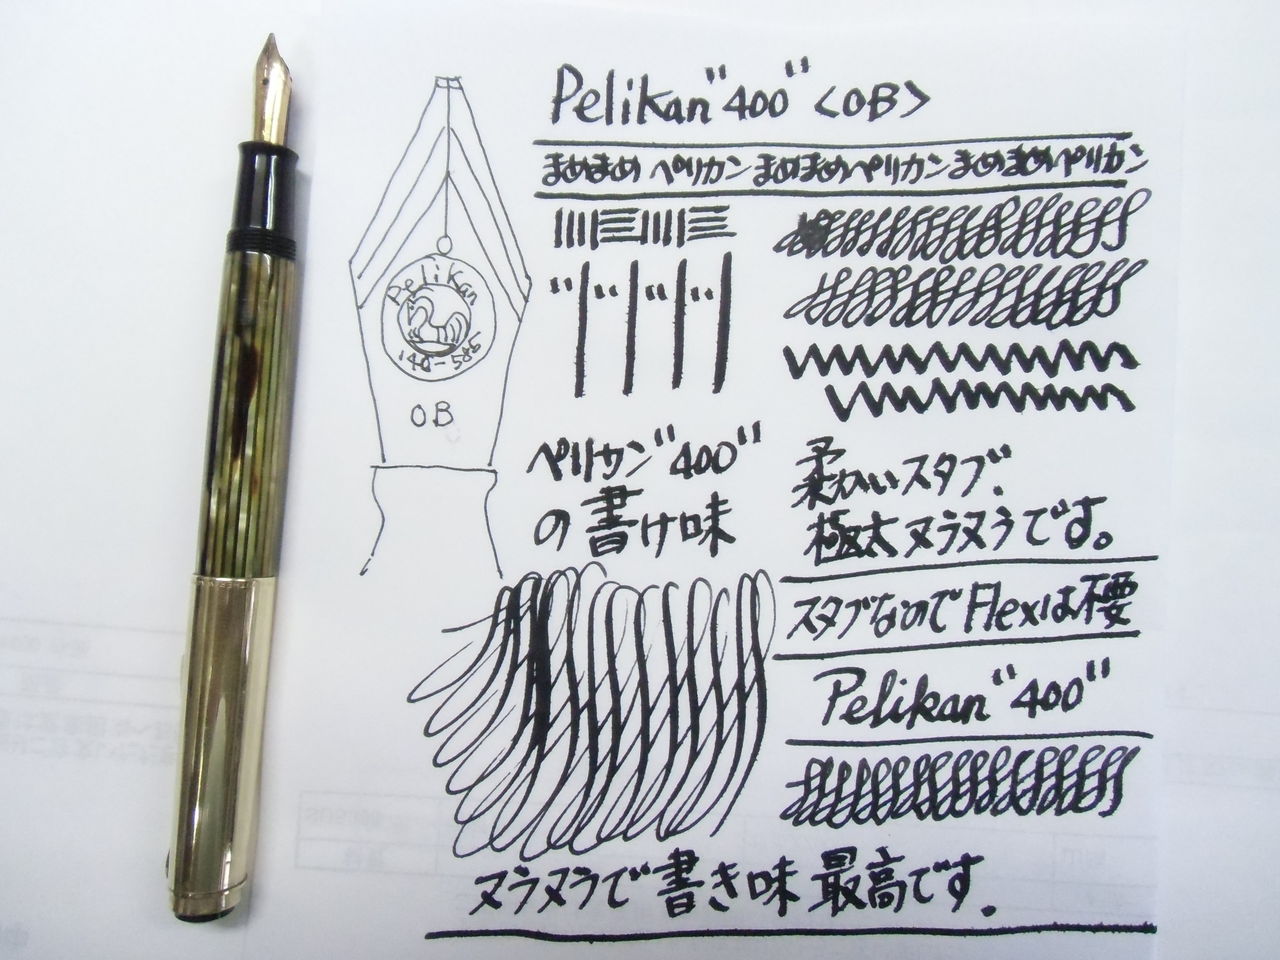 Pelikan "400" <OB>
まめまめ ペリカン まめまめペリカン まめまめペリカン
Pelikan
14C-585
OB
ペリカン"400"
の書け味
柔かいスタブ、
極太 ヌラヌラです。
スタブなので Flexは不要
Pelikan "400"
ヌラヌラで書き味 最高です.